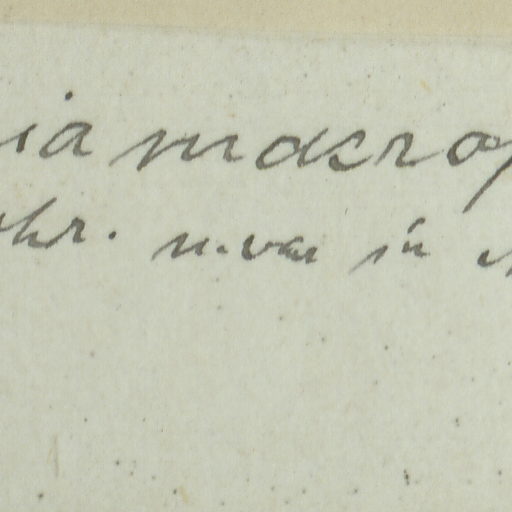 ia macrop
ohr. n. var in